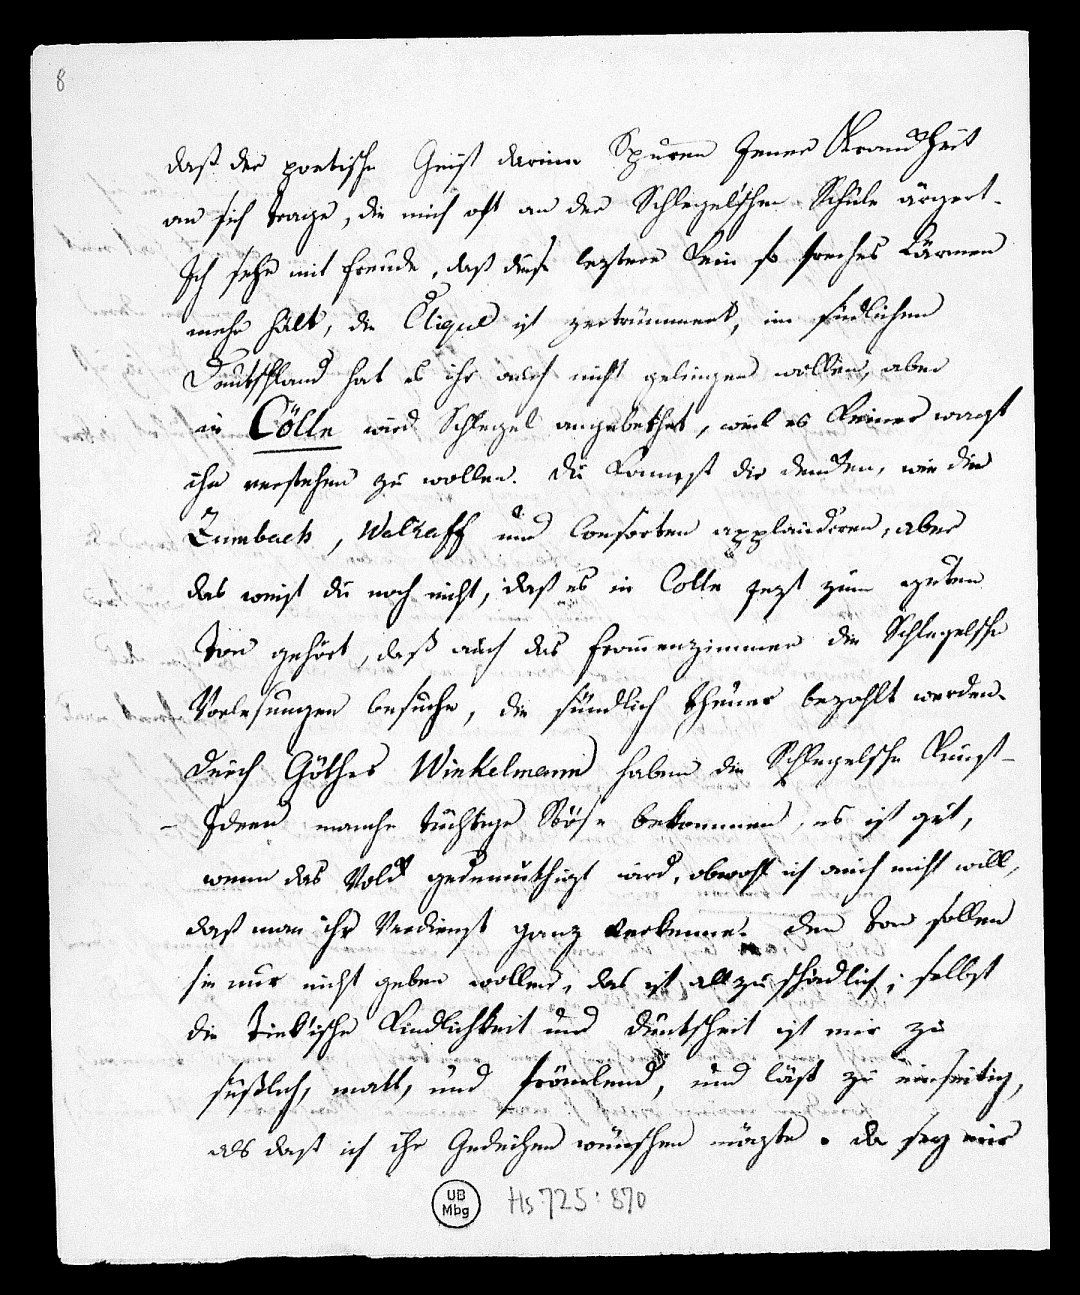 8
daß der poetische Geist darinn Spuren Jener Krankheit
an sich trage, die mich oft an der Schlegelschen Schule ärgert.
Ich sehe mit Freude, daß diese leztere kein so freches Lärmen
mehr hält, die Clique ist zertrümmert, im südlichen
Deutschland hat es ihr auch nicht gelingen wollen, aber
in Cölln wird Schlegel angebethet, weil es Keiner wagt
ihn verstehen zu wollen. Du kannst dir denken, wie die
Zumbach, Walraff und Consorten applaudiren, aber
das weist du noch nicht, daß es in Cölln jezt zum guten
Ton gehört, daß auch das Frauenzimmer die Schlegelsche
Vorlesungen besuche, die sündlich theuer bezahlt werden.
Durch Göthes Winkelmann haben die Schlegelsche Kunst-
- Ideen manche tüchtige Stöße bekommen, es ist gut,
wenn das Volk gedemüthigt wird, obwohl ich auch nicht will,
daß man ihr Verdienst ganz verkenne. Den Ton sollen
sie nur nicht geben wollen, das ist allzu schädlich; selbst
die Tiek'ische Kindlichkeit und Deutschheit ist mir zu
süßlich, matt, und frömlend, und läst zu einseitig,
als daß ich ihr Gedeihen wünschen mögte. Da sey mir
UB
Mbg
Hs 725:870